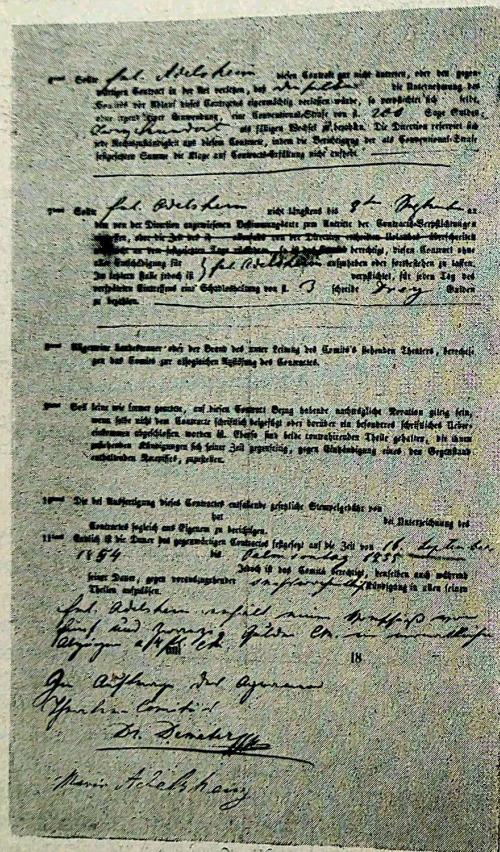 6tens Sollte Frl. Adelsheim diesen Contract gar nicht antreten, oder den gegen-
wärtigen Contract in der Art verletzen, daß dieselbe die Unternehmung des
Comités vor Ablauf dieses Contractes eigenmächtig verlassen würde, so verpflichtet sich selbe,
ohne irgend einer Einwendung, eine Conventional-Strafe von f. 200 Sage Gulden
Zwey Hundert als fälligen Wechsel zu bezahlen. Die Direction reservirt sich
jede Rechtszuständigkeit aus diesem Contracte, indem die Berichtigung der als Conventional-Strafe
festgesetzten Summe die Klage auf Contracts-Erfüllung nicht aufhebt.
7tens Sollte Frl. Adelsheim nicht längstens bis 9ten September an
dem von der Direction angewiesenen Bestimmungsorte zum Antritte der Contracts-Verpflichtungen
berechtigt, diesen Contract ohne
aller Entschädigung für Frl. Adelsheim aufzuheben oder fortbestehen zu lassen.
Im letztern Falle jedoch ist verpflichtet, für jeden Tag des
verspäteten Eintreffens eine Schadloshaltung von f. 3 schreibe Drey Gulden
zu bezahlen.
8tens Allgemeine Landestrauer oder der Brand des unter Leitung des Comité's stehenden Theaters, berechti-
gen das Comité zur allsogleichen Auflösung des Contractes.
9tens Soll keine wie immer geartete, auf diesen Contract Bezug habende nachträgliche Novation giltig sein,
wenn selbe nicht dem Contracte schriftlich beigefügt oder darüber ein besonderes schriftliches Ueber-
einkommen abgeschlossen worden ist. Ebenso sind beide contrahirenden Theile gehalten, die ihnen
zustehenden Kündigungen sich seiner Zeit gegenseitig, gegen Einhändigung eines den Gegenstand
enthaltenden Receptes, zuzustellen.
10tens Die bei Ausfertigung dieses Contractes entfallende gesetzliche Stempelgebühr von
hat bei Unterzeichnung des
Contractes sogleich aus Eigenem zu berichtigen.
11tens Endlich ist die Dauer des gegenwärtigen Contractes festgesetzt auf die Zeit von 16. September
1854 bis Palmsontag 1855
Jedoch ist das Comité berechtigt, denselben auch während
seiner Dauer, gegen vorauszugehender Kündigung in allen seinen
Theilen aufzulösen.
Frl. Adelsheim erhält einen Vorschuß von
fünf und zwanzig Gulden CM. in monatlichen
Abzügen
18
Im Auftrage des Agramer
Theater Comités
Dr. Demeter
Marie Adelsheim